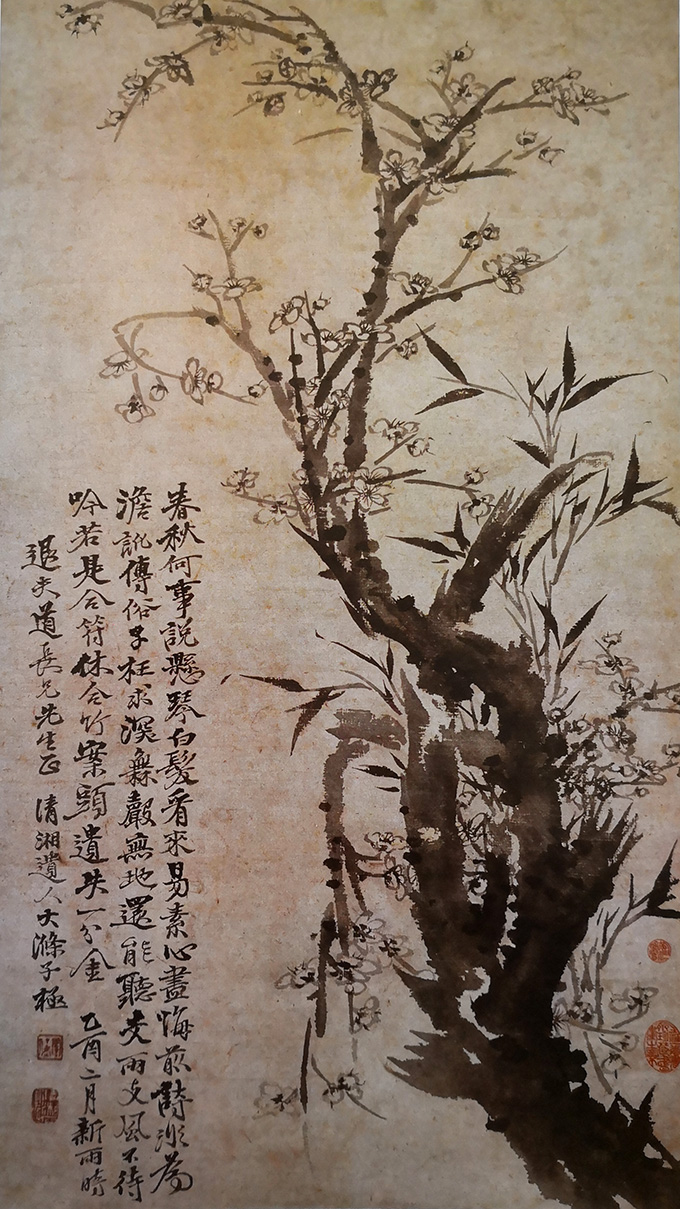 春秋何事說懸琴白髮看來易素心盡悔前詩非為
澹訛傳俗子枉求深無聲無地還能聽交雨交風不待
吟若是合符休合竹案頭遺失一分金 乙酉二月新雨時
退夫道長兄先生正 清湘遺人大滌子極